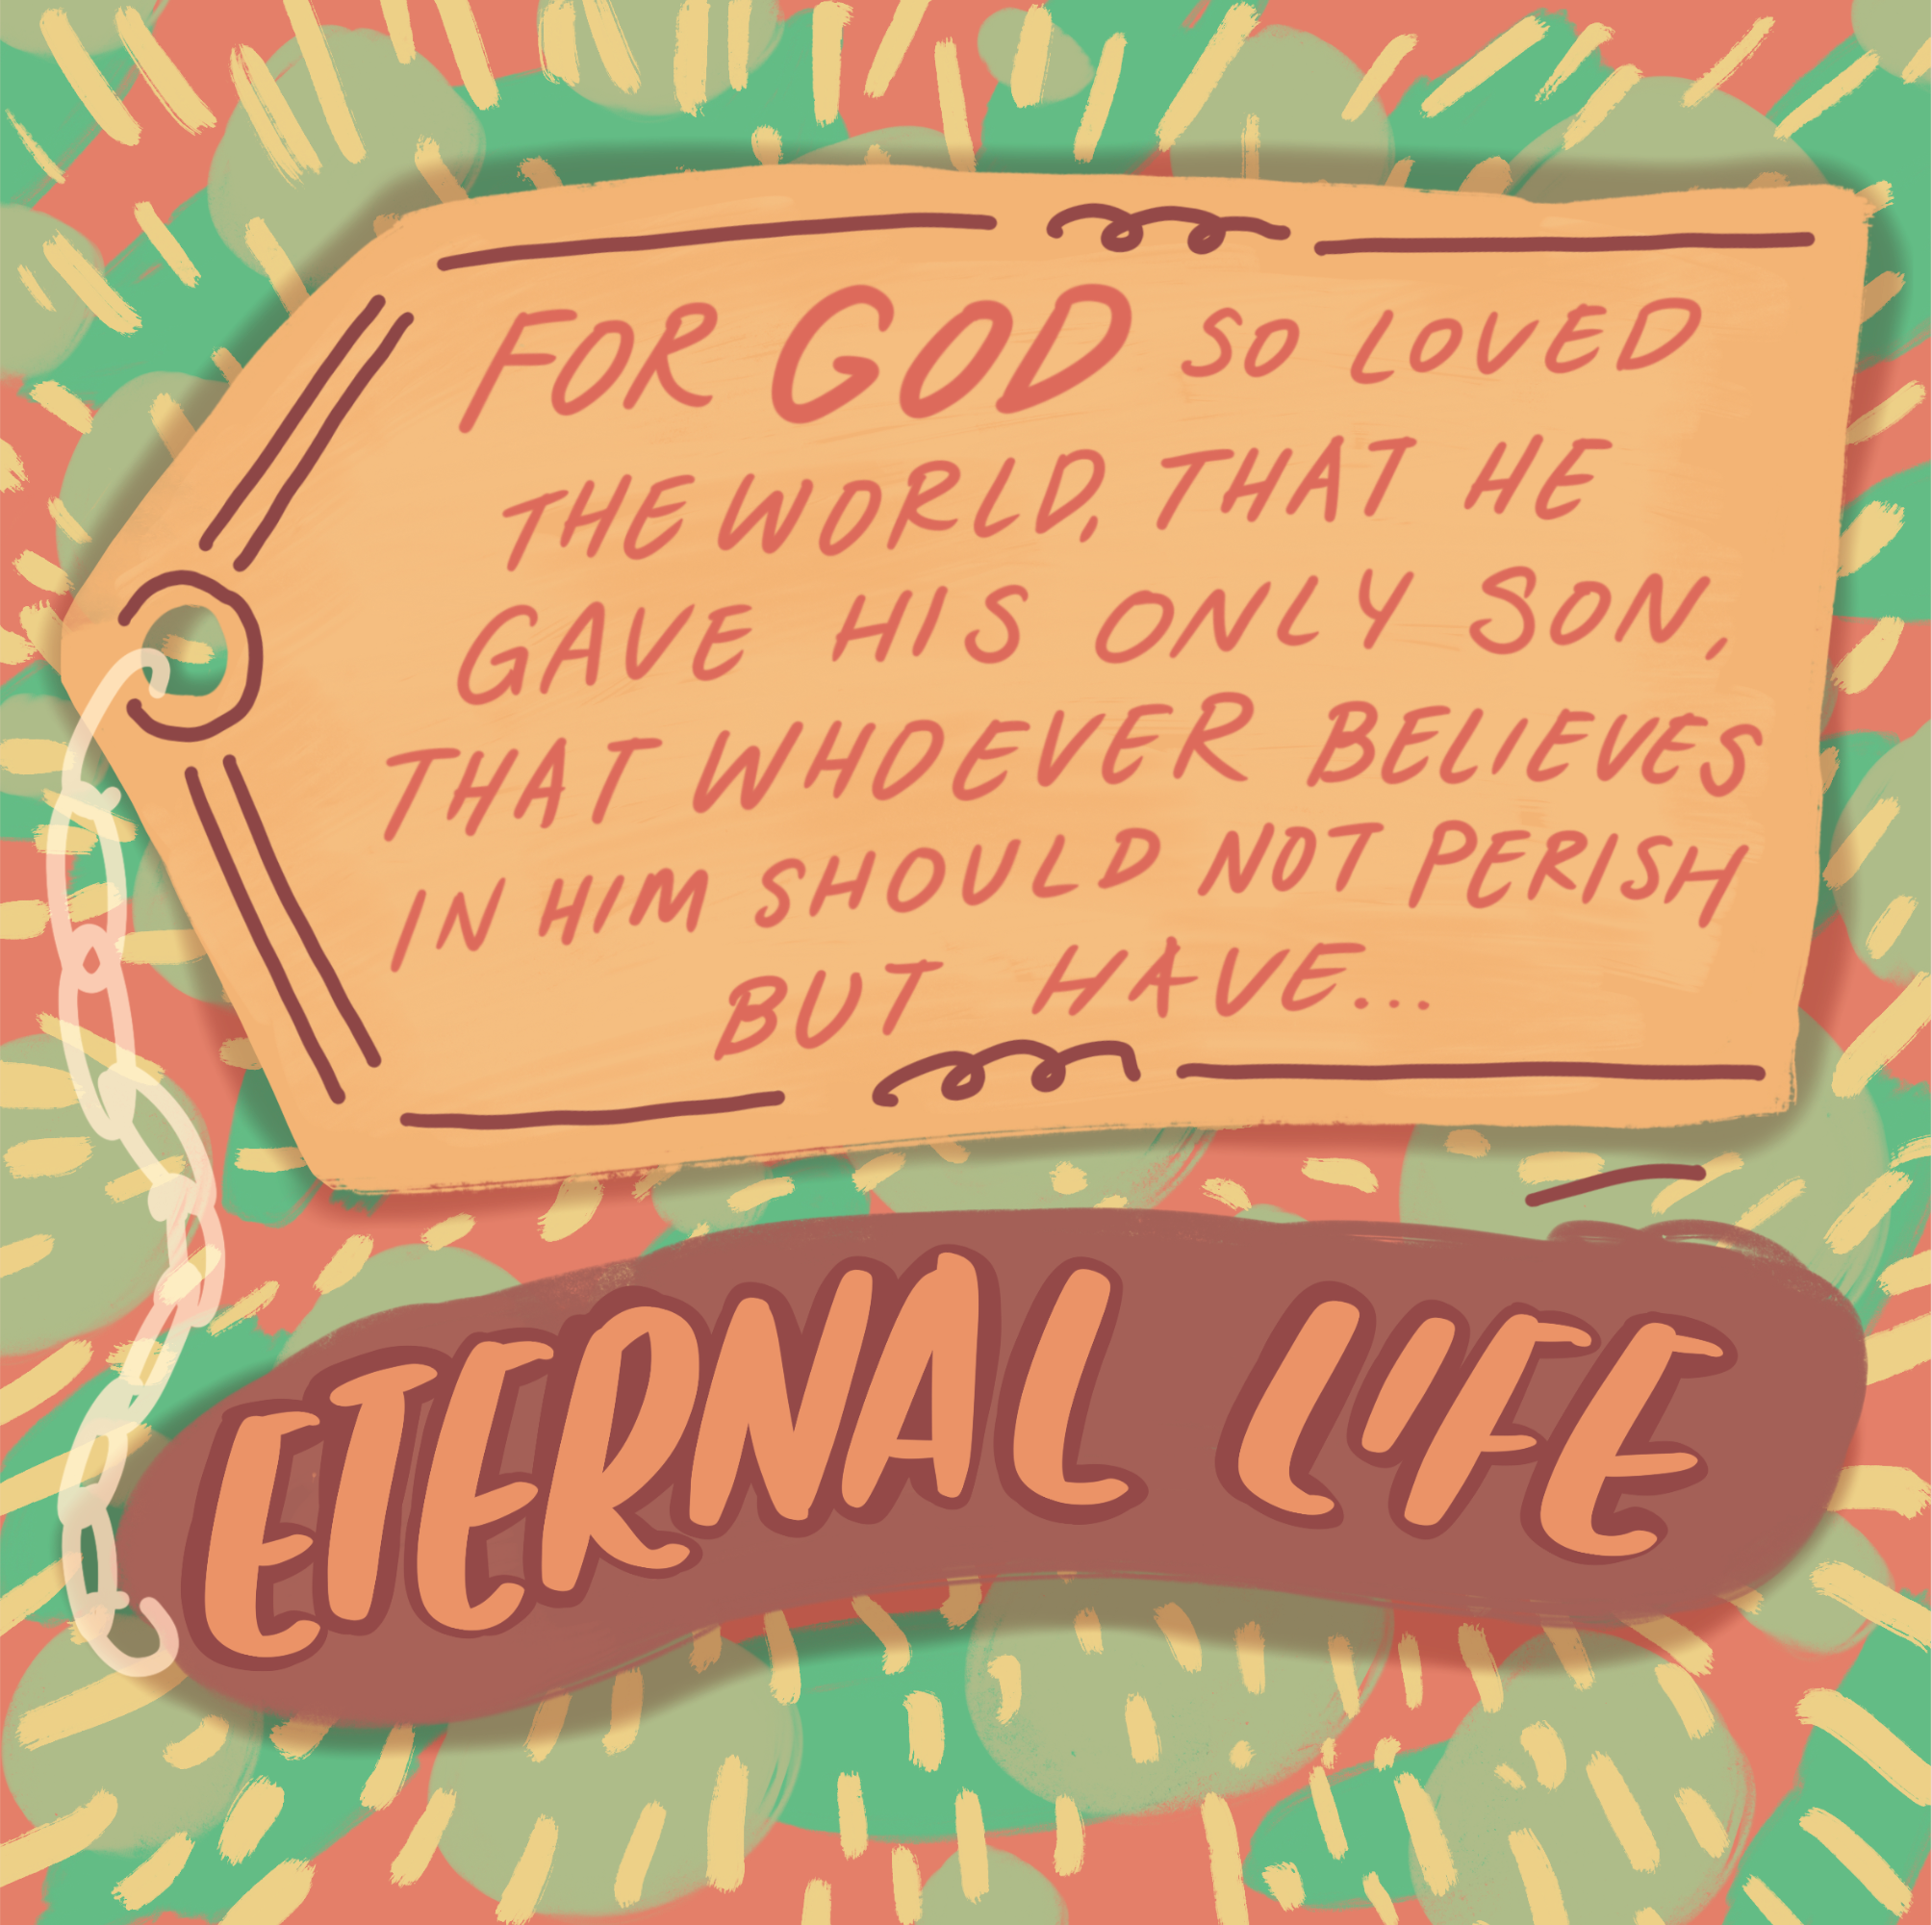 FOR GOD SO LOVED
THE WORLD, THAT HE
GAVE HIS ONLY SON,
THAT WHOEVER BELIEVES
IN HIM SHOULD NOT PERISH
BUT HAVE...
ETERNAL LIFE